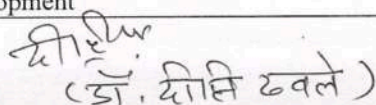 opment
(डॉ. दीप्ति ढवले)